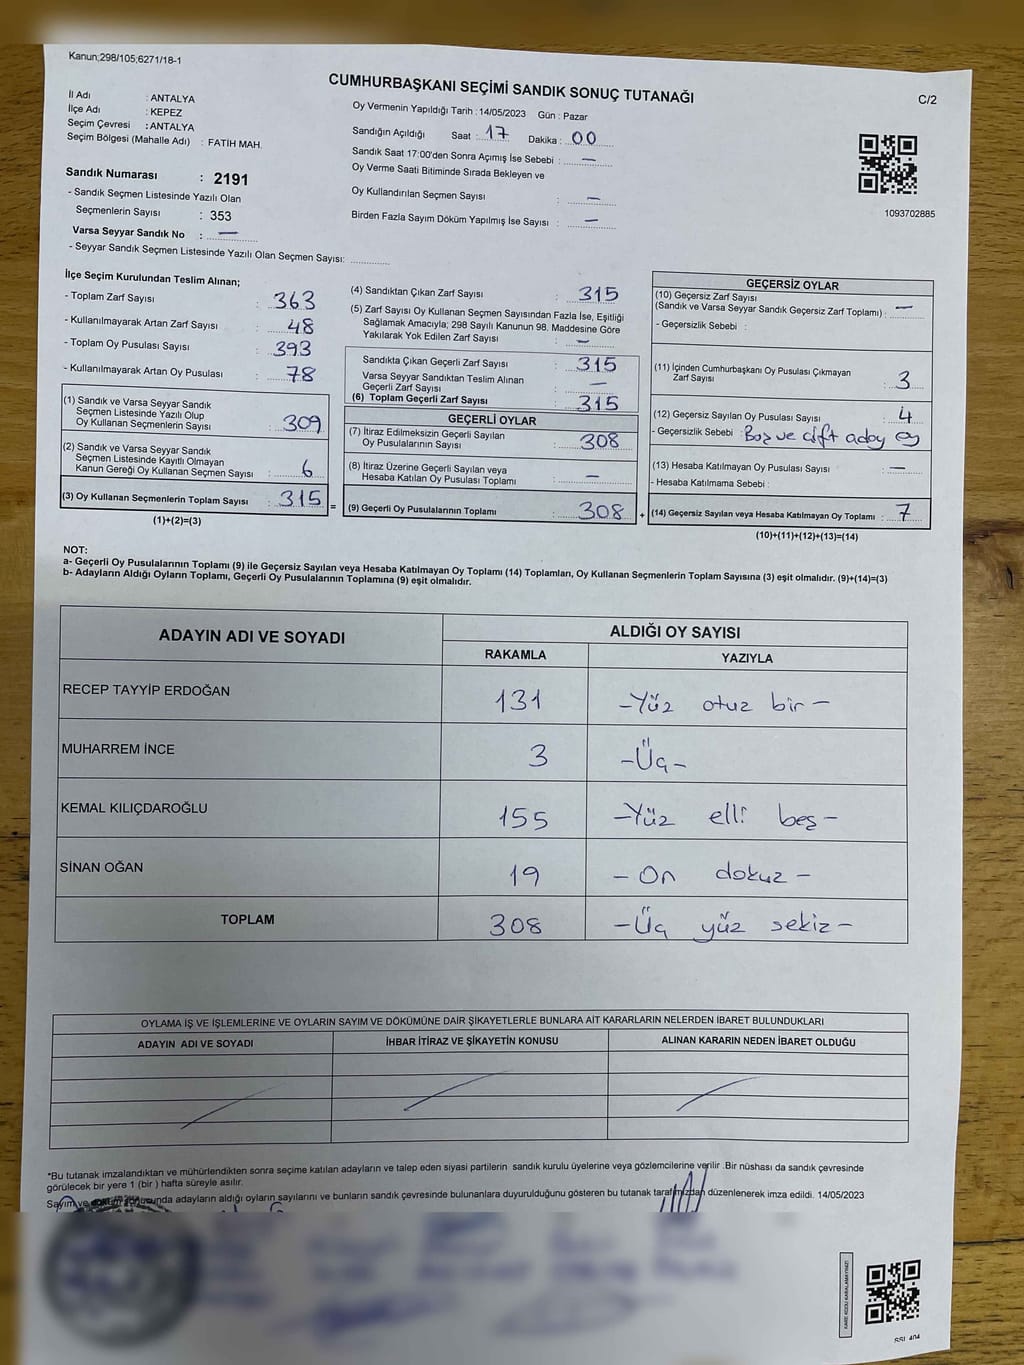 Kanun;298/105;6271/18-1
CUMHURBAŞKANI SEÇİMİ SANDIK SONUÇ TUTANAĞI
C/2
İl Adı : ANTALYA
İlçe Adı : KEPEZ
Seçim Çevresi : ANTALYA
Seçim Bölgesi (Mahalle Adı) : FATİH MAH.
Sandık Numarası : 2191
- Sandık Seçmen Listesinde Yazılı Olan
Seçmenlerin Sayısı : 353
Varsa Seyyar Sandık No : —
- Seyyar Sandık Seçmen Listesinde Yazılı Olan Seçmen Sayısı: ............
Oy Vermenin Yapıldığı Tarih : 14/05/2023 Gün : Pazar
Sandığın Açıldığı Saat : 17 Dakika : 00
Sandık Saat 17:00'den Sonra Açımış İse Sebebi : —
Oy Verme Saati Bitiminde Sırada Bekleyen ve
Oy Kullandırılan Seçmen Sayısı : —
Birden Fazla Sayım Döküm Yapılmış İse Sayısı : —
1093702885
İlçe Seçim Kurulundan Teslim Alınan;
- Toplam Zarf Sayısı : 363
- Kullanılmayarak Artan Zarf Sayısı : 48
- Toplam Oy Pusulası Sayısı : 393
- Kullanılmayarak Artan Oy Pusulası : 78
(1) Sandık ve Varsa Seyyar Sandık
Seçmen Listesinde Yazılı Olup
Oy Kullanan Seçmenlerin Sayısı : 309
(2) Sandık ve Varsa Seyyar Sandık
Seçmen Listesinde Kayıtlı Olmayan
Kanun Gereği Oy Kullanan Seçmen Sayısı : 6
(3) Oy Kullanan Seçmenlerin Toplam Sayısı : 315 =
(1)+(2)=(3)
(4) Sandıktan Çıkan Zarf Sayısı : 315
(5) Zarf Sayısı Oy Kullanan Seçmen Sayısından Fazla İse, Eşitliği
Sağlamak Amacıyla; 298 Sayılı Kanunun 98. Maddesine Göre
Yakılarak Yok Edilen Zarf Sayısı : —
Sandıkta Çıkan Geçerli Zarf Sayısı : 315
Varsa Seyyar Sandıktan Teslim Alınan
Geçerli Zarf Sayısı : —
(6) Toplam Geçerli Zarf Sayısı : 315
GEÇERLİ OYLAR
(7) İtiraz Edilmeksizin Geçerli Sayılan
Oy Pusulalarının Sayısı : 308
(8) İtiraz Üzerine Geçerli Sayılan veya
Hesaba Katılan Oy Pusulası Toplamı : —
(9) Geçerli Oy Pusulalarının Toplamı : 308 +
GEÇERSİZ OYLAR
(10) Geçersiz Zarf Sayısı
(Sandık ve Varsa Seyyar Sandık Geçersiz Zarf Toplamı) : —
- Geçersizlik Sebebi :
(11) İçinden Cumhurbaşkanı Oy Pusulası Çıkmayan
Zarf Sayısı : 3
(12) Geçersiz Sayılan Oy Pusulası Sayısı : 4
- Geçersizlik Sebebi : Boş ve çift aday oy
(13) Hesaba Katılmayan Oy Pusulası Sayısı : —
- Hesaba Katılmama Sebebi :
(14) Geçersiz Sayılan veya Hesaba Katılmayan Oy Toplamı : 7
(10)+(11)+(12)+(13)=(14)
NOT:
a- Geçerli Oy Pusulalarının Toplamı (9) ile Geçersiz Sayılan veya Hesaba Katılmayan Oy Toplamı (14) Toplamları, Oy Kullanan Seçmenlerin Toplam Sayısına (3) eşit olmalıdır. (9)+(14)=(3)
b- Adayların Aldığı Oyların Toplamı, Geçerli Oy Pusulalarının Toplamına (9) eşit olmalıdır.
ADAYIN ADI VE SOYADI ALDIĞI OY SAYISI
RAKAMLA YAZIYLA
RECEP TAYYİP ERDOĞAN 131 -Yüz otuz bir-
MUHARREM İNCE 3 -Üç-
KEMAL KILIÇDAROĞLU 155 -Yüz elli beş-
SİNAN OĞAN 19 - On dokuz -
TOPLAM 308 -Üç yüz sekiz-
OYLAMA İŞ VE İŞLEMLERİNE VE OYLARIN SAYIM VE DÖKÜMÜNE DAİR ŞİKAYETLERLE BUNLARA AİT KARARLARIN NELERDEN İBARET BULUNDUKLARI
ADAYIN ADI VE SOYADI İHBAR İTİRAZ VE ŞİKAYETİN KONUSU ALINAN KARARIN NEDEN İBARET OLDUĞU
*Bu tutanak imzalandıktan ve mühürlendikten sonra seçime katılan adayların ve talep eden siyasi partilerin sandık kurulu üyelerine veya gözlemcilerine verilir .Bir nüshası da sandık çevresinde
görülecek bir yere 1 (bir ) hafta süreyle asılır.
Sayım ve döküm sonucunda adayların aldığı oyların sayılarını ve bunların sandık çevresinde bulunanlara duyurulduğunu gösteren bu tutanak tarafımızdan düzenlenerek imza edildi. 14/05/2023
KARE KODU KARALAMAYINIZ!